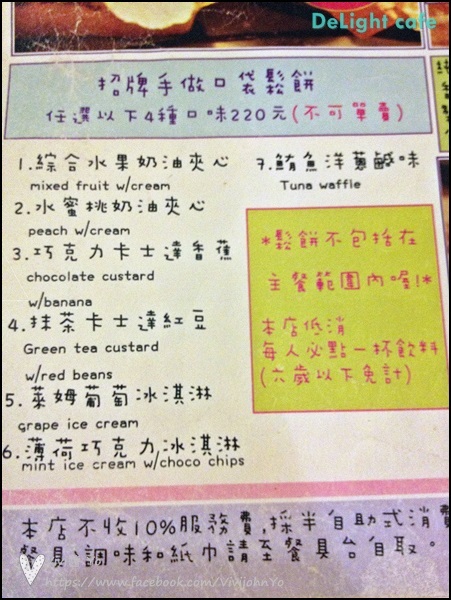 DeLight cafe
招牌手做口袋鬆餅
任選以下4種口味220元(不可單賣)
1.綜合水果奶油夾心
mixed fruit w/cream
2.水蜜桃奶油夾心
peach w/cream
3.巧克力卡士達香蕉
chocolate custard
w/banana
4.抹茶卡士達紅豆
Green tea custard
w/red beans
5.萊姆葡萄冰淇淋
grape ice cream
6.薄荷巧克力冰淇淋
mint ice cream w/choco chips
7.鮪魚洋蔥鹹味
Tuna waffle
*鬆餅不包括在
主餐範圍內喔!*
本店低消
每人必點一杯飲料
(六歲以下免計)
本店不收10%服務費,採半自助式消費
餐具、調味和紙巾請至餐具台自取。
https://www.facebook.com/VivijohnYo